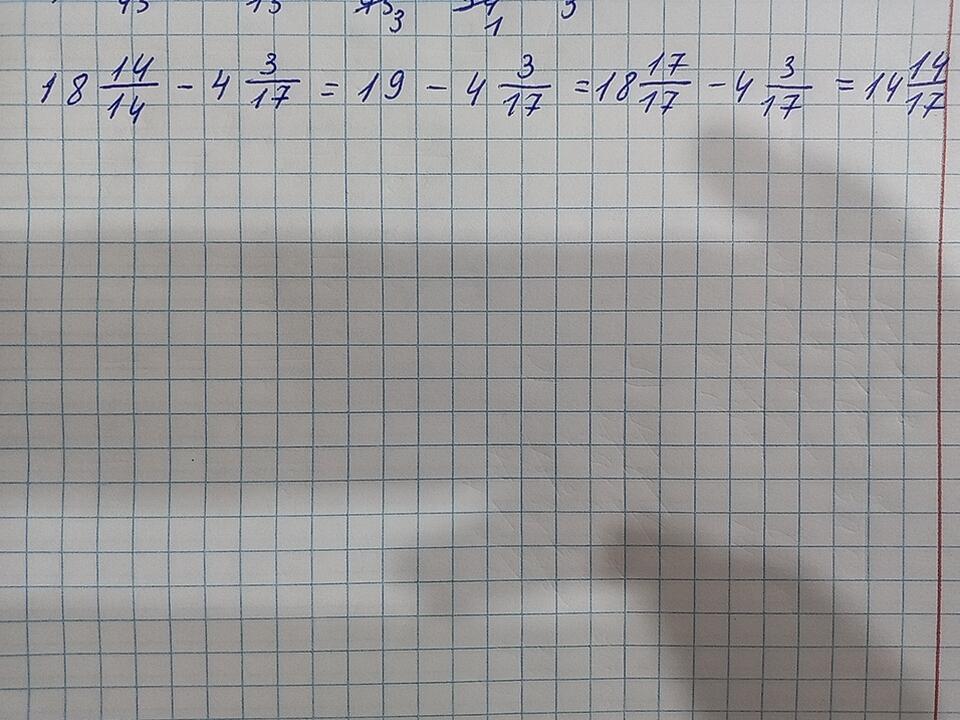 18 14/14 - 4 3/17 = 19 - 4 3/17 = 18 17/17 - 4 3/17 = 14 14/17